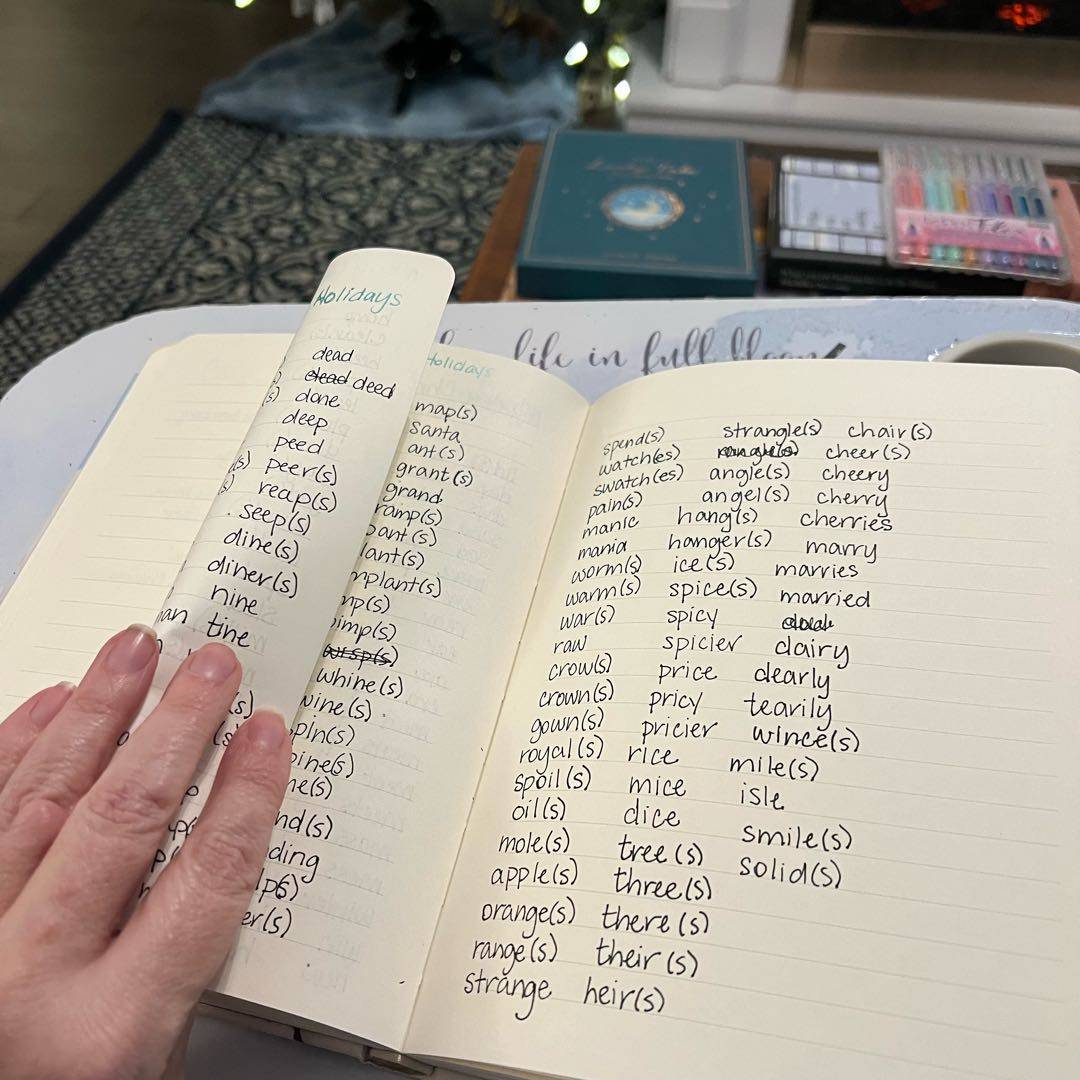 Holidays
dead
dead deed
(s) done
deep
peed
(s) peer(s)
reap(s)
seep(s)
dine(s)
diner(s)
nine
tine
Holidays
map(s)
santa
ant(s)
grant(s)
grand
whine(s)
spend(s)
watch(es)
swatch(es)
pain(s)
manic
mania
worm(s)
warm(s)
war(s)
raw
crow(s)
crown(s)
gown(s)
royal(s)
spoil(s)
oil(s)
mole(s)
apple(s)
orange(s)
range(s)
strange
strangle(s)
angle(s)
angel(s)
hang(s)
hanger(s)
ice(s)
spice(s)
spicy
spicier
price
pricy
pricier
rice
mice
dice
tree(s)
three(s)
there(s)
their(s)
heir(s)
chair(s)
cheer(s)
cheery
cherry
cherries
marry
marries
married
dairy
dearly
tearily
wince(s)
mile(s)
isle
smile(s)
solid(s)
life in full bloom